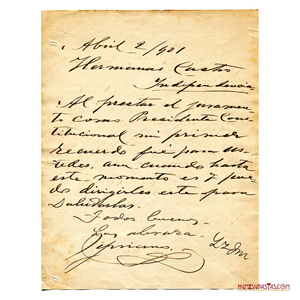 Abril 2/901
Hermanas Castro
Independencia
Al prestar el juramen-
to como Presidente Cons-
titucional mi primer
recuerdo fué para us-
tedes, aun cuando hasta
este momento es q' pue-
do dirigirles este para
Saludarlas.
Todos buenos.
Las abraza
Cipriano.
NUMISUBASTAS.COM